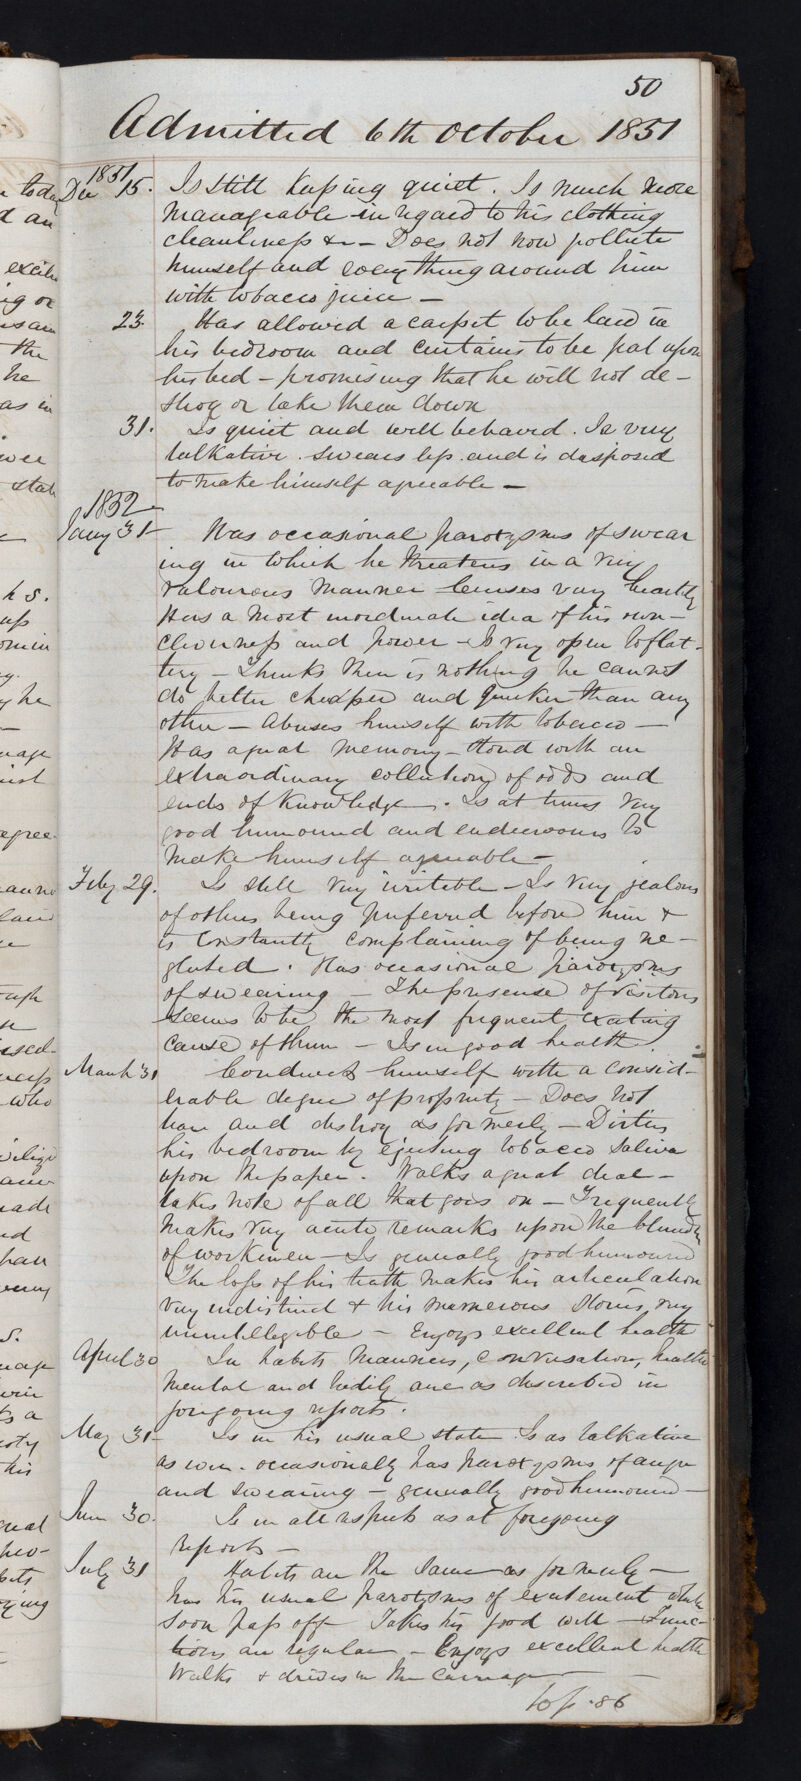 50
Admitted 6th October 1851
1851
Dec 15. Is still keeping quiet. Is much more
manageable in regard to his clothing
cleanliness &c — Does not now pollute
himself and everything around him
with tobacco juice —
23. Has allowed a carpet to be laid in
his bedroom and curtains to be put upon
his bed — promising that he will not de-
stroy or take them down
31. Is quiet and well behaved. Is very
talkative. swears less and is disposed
to make himself agreeable —
1852
Jany 31 Has occasional paroxysms of swear
ing in which he threatens in a very
valourous manner curses very heartily
Has a most inordinate idea of his own
cleverness and power — Is very open to flat-
tery — Thinks there is nothing he cannot
do better cheaper and quicker than any
other — Abuses himself with tobacco —
Has a great memory — stored with an
extraordinary collection of odds and
ends of knowledge. Is at times very
good humoured and endeavours to
make himself agreeable —
Feby 29. Is still very irritable — Is very jealous
of others being preferred before him &
is constantly complaining of being ne-
glected. Has occasional paroxysms
of swearing — The presense of visitors
seems to be the most frequent exciting
cause of them — Is in good health.
March 31 Conducts himself with a consid-
erable degree of propriety — Does not
tear and destroy as formerly — Dirties
his bedroom by ejecting tobacco saliva
upon the paper. Walks a great deal —
takes note of all that goes on — Frequently
makes very acute remarks upon the blunders
of workmen — Is generally good humoured
The loss of his teeth makes his articulation
very indistinct & his numerous stories, very
unintelligible — Enjoys excellent health
April 30 In habits manners, conversation, health
mental and bodily are as described in
foregoing reports.
May 31 Is in his usual state Is as talkative
as ever. occasionally has paroxysms of anger
and swearing — generally good humoured —
June 30. Is in all respects as at foregoing
reports —
July 31 Habits are the same as formerly —
has his usual paroxysms of excitement which
soon pass off Takes his food well — Func-
tions are regular — Enjoys excellent health
Walks & drives in the carriage —
to p. 86